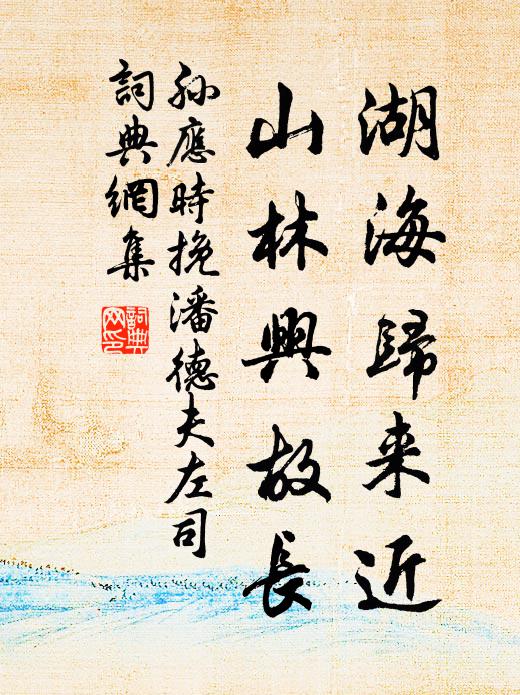 湖海歸来近
山林興故長
孫應時挽潘德夫左司
詞典網集
詞典网印